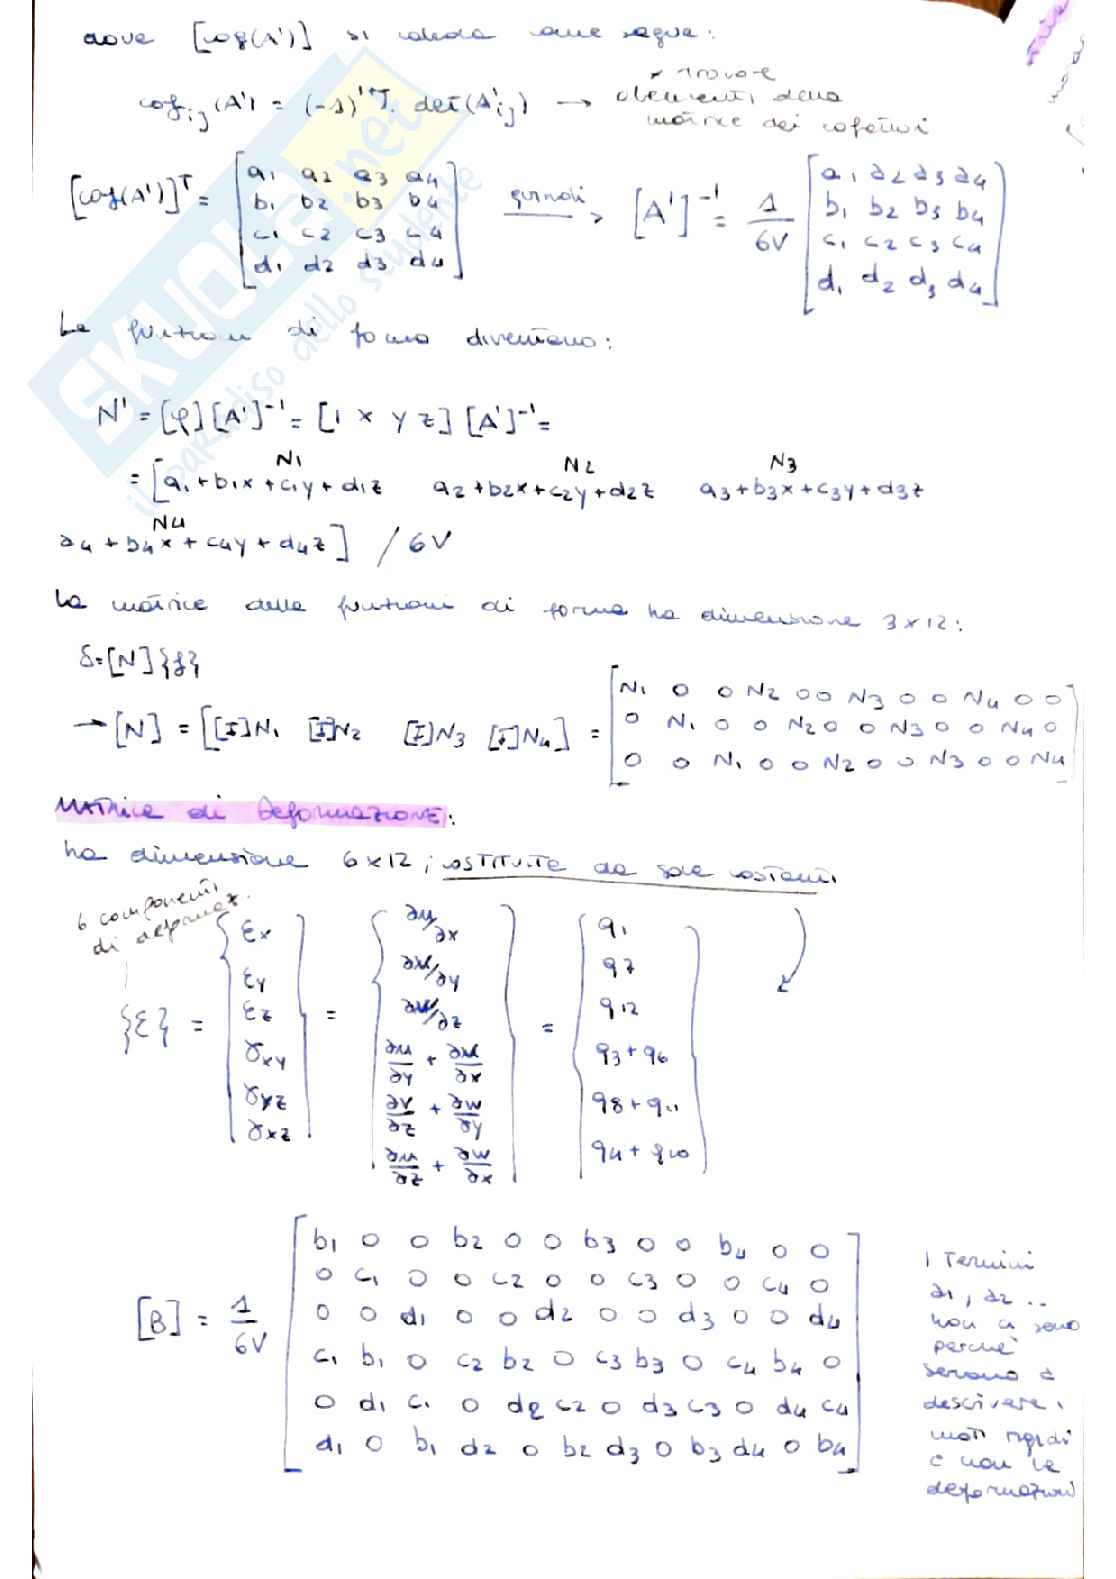 dove [cof(A')] si calcola come segue:
cof_ij (A') = (-1)^(i+j) · det(A'_ij) → elementi della
matrice dei cofattori
x trovare
[cof(A')]^T = [a1 a2 a3 a4
b1 b2 b3 b4
c1 c2 c3 c4
d1 d2 d3 d4]
quindi → [A']^-1 = 1/6V [a1 a2 a3 a4
b1 b2 b3 b4
c1 c2 c3 c4
d1 d2 d3 d4]
Le funzioni di forma diventano:
N' = [φ][A']^-1 = [1 x y z][A']^-1 =
N1 N2 N3
= [a1+b1x+c1y+d1z a2+b2x+c2y+d2z a3+b3x+c3y+d3z
N4
a4+b4x+c4y+d4z] / 6V
La matrice delle funzioni di forma ha dimensione 3x12:
δ=[N]{f}
→ [N] = [[I]N1 [I]N2 [I]N3 [I]N4] = [N1 0 0 N2 0 0 N3 0 0 N4 0 0
0 N1 0 0 N2 0 0 N3 0 0 N4 0
0 0 N1 0 0 N2 0 0 N3 0 0 N4]
MATRICE di DEFORMAZIONE:
ha dimensione 6x12, costituite da sole costanti
6 componenti
di deformaz.
{ε} = {εx
εy
εz
γxy
γyz
γxz}
= {∂u/∂x
∂v/∂y
∂w/∂z
∂u/∂y + ∂v/∂x
∂v/∂z + ∂w/∂y
∂u/∂z + ∂w/∂x}
= {q1
q7
q12
q3+q6
q8+q11
q4+q10}
[B] = 1/6V [b1 0 0 b2 0 0 b3 0 0 b4 0 0
0 c1 0 0 c2 0 0 c3 0 0 c4 0
0 0 d1 0 0 d2 0 0 d3 0 0 d4
c1 b1 0 c2 b2 0 c3 b3 0 c4 b4 0
0 d1 c1 0 d2 c2 0 d3 c3 0 d4 c4
d1 0 b1 d2 0 b2 d3 0 b3 d4 0 b4]
I Termini
a1, a2 ..
non ci sono
perché
servono a
descrivere i
moti rigidi
e non le
deformazioni
SKUOLA.net
il paradiso dello studente